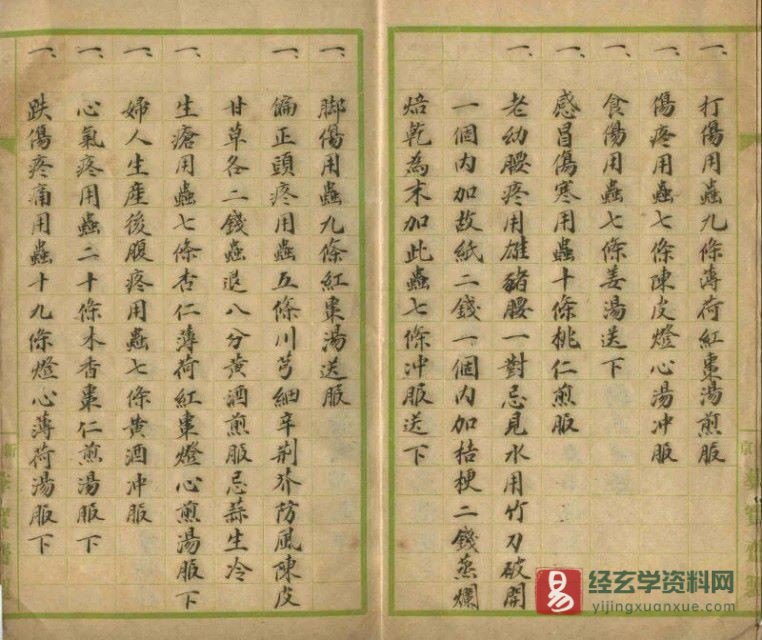 一、打傷用蟲九條薄荷紅棗湯煎服
一、傷疼用蟲七條陳皮燈心湯冲服
一、食傷用蟲七條姜湯送下
一、感冒傷寒用蟲十條桃仁煎服
一、老幼腰疼用雄豬腰一對忌見水用竹刀破開
一個内加故紙二錢一個内加桔梗二錢蒸爛
焙乾為末加此蟲七條冲服送下
一、脚傷用蟲九條紅棗湯送服
一、偏正頭疼用蟲五條川芎細辛荆芥防風陳皮
甘草各二錢蟲退八分黄酒煎服忌蒜生冷
一、生瘡用蟲七條杏仁薄荷紅棗燈心煎湯服下
一、婦人生產後腹疼用蟲七條黄酒冲服
一、心氣疼用蟲二十條木香棗仁煎湯服下
一、跌傷疼痛用蟲十九條燈心薄荷湯服下
易
经玄学资料网
yijingxuanxue.com